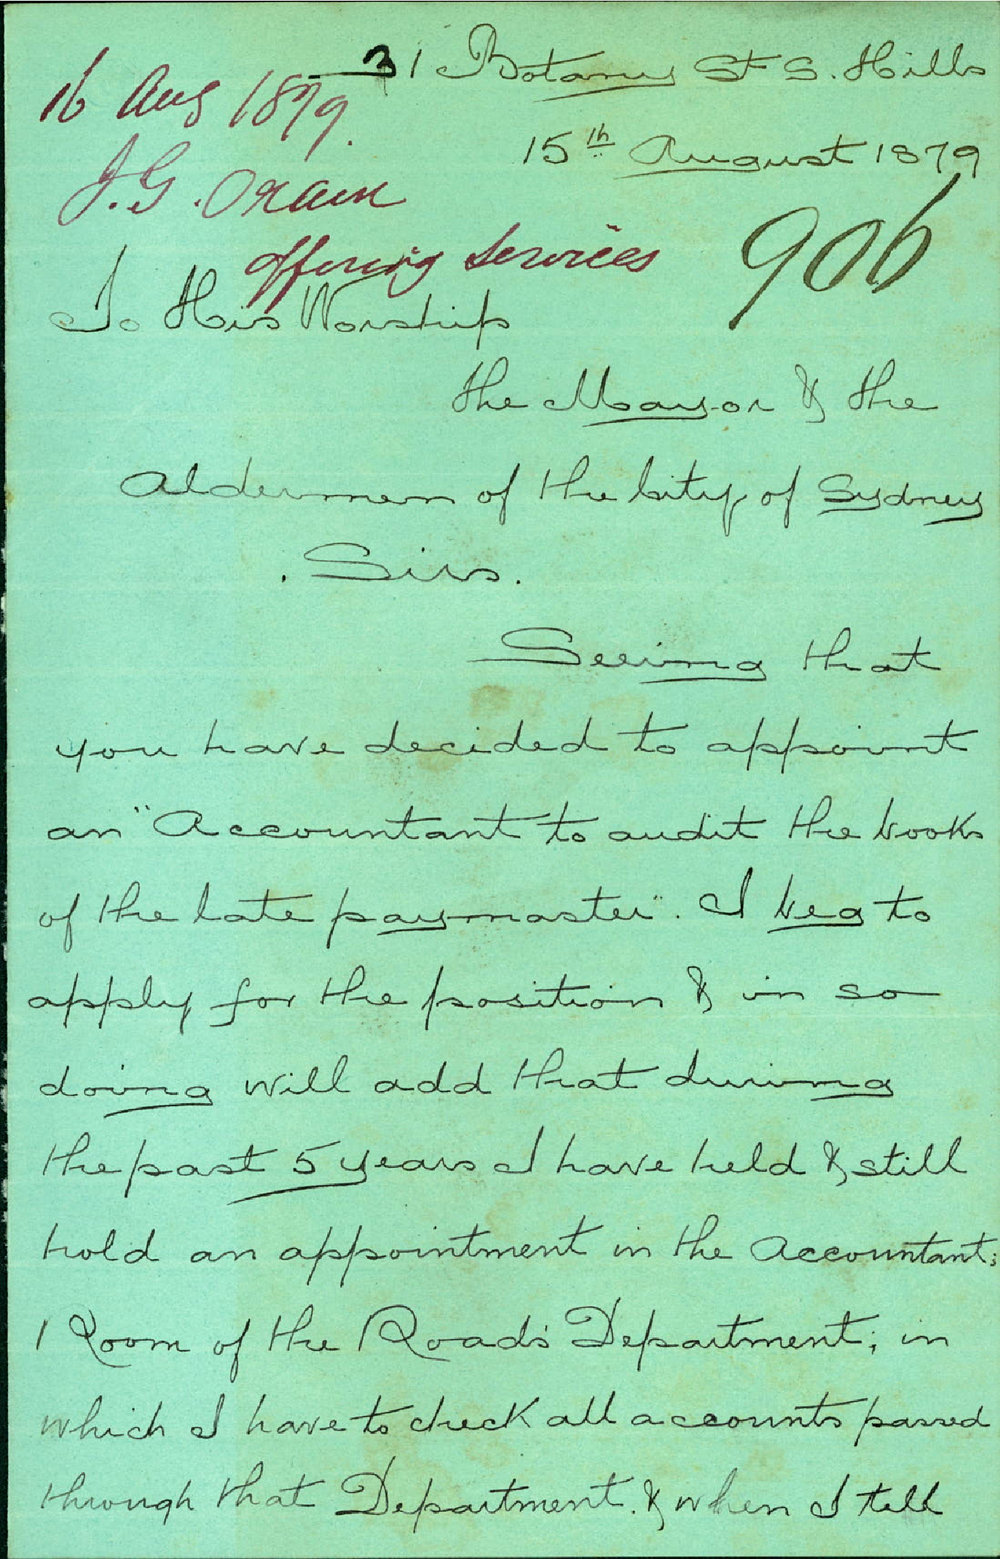 31 Botany St S. Hills
16 Aug 1879.
15th August 1879
J. G. Oram
offering services
906
To His Worship
the Mayor & the
Aldermen of the City of Sydney
. Sirs.
Seeing that
you have decided to appoint
an "Accountant to audit the books
of the late paymaster". I beg to
apply for the position & in so
doing will add that during
the past 5 years I have held & still
hold an appointment in the Accountants
Room of the Roads Department; in
which I have to check all accounts passed
through that Department. & when I tell